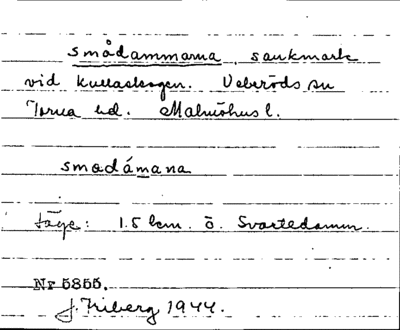 smådammarna, sankmark
vid Kullaskogen. Veberöds sn
Torna hd. Malmöhus l.
smɑdámana
Läge: 1.5 km. ö. Svartedamm.
Nr 5855.
J. Friberg 1944.